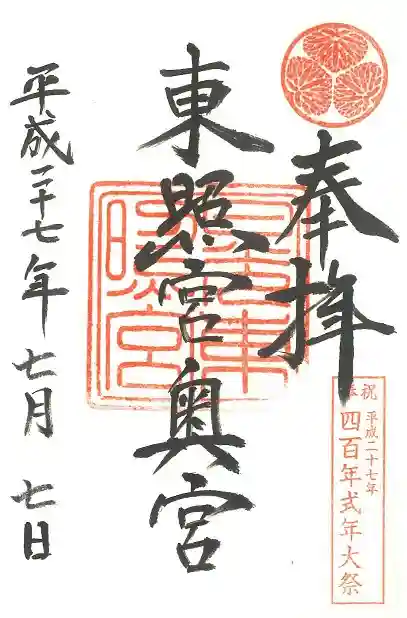 奉拝
奉祝
平成二十七年
四百年式年大祭
東照宮奥宮
東照宮
平成二十七年七月七日